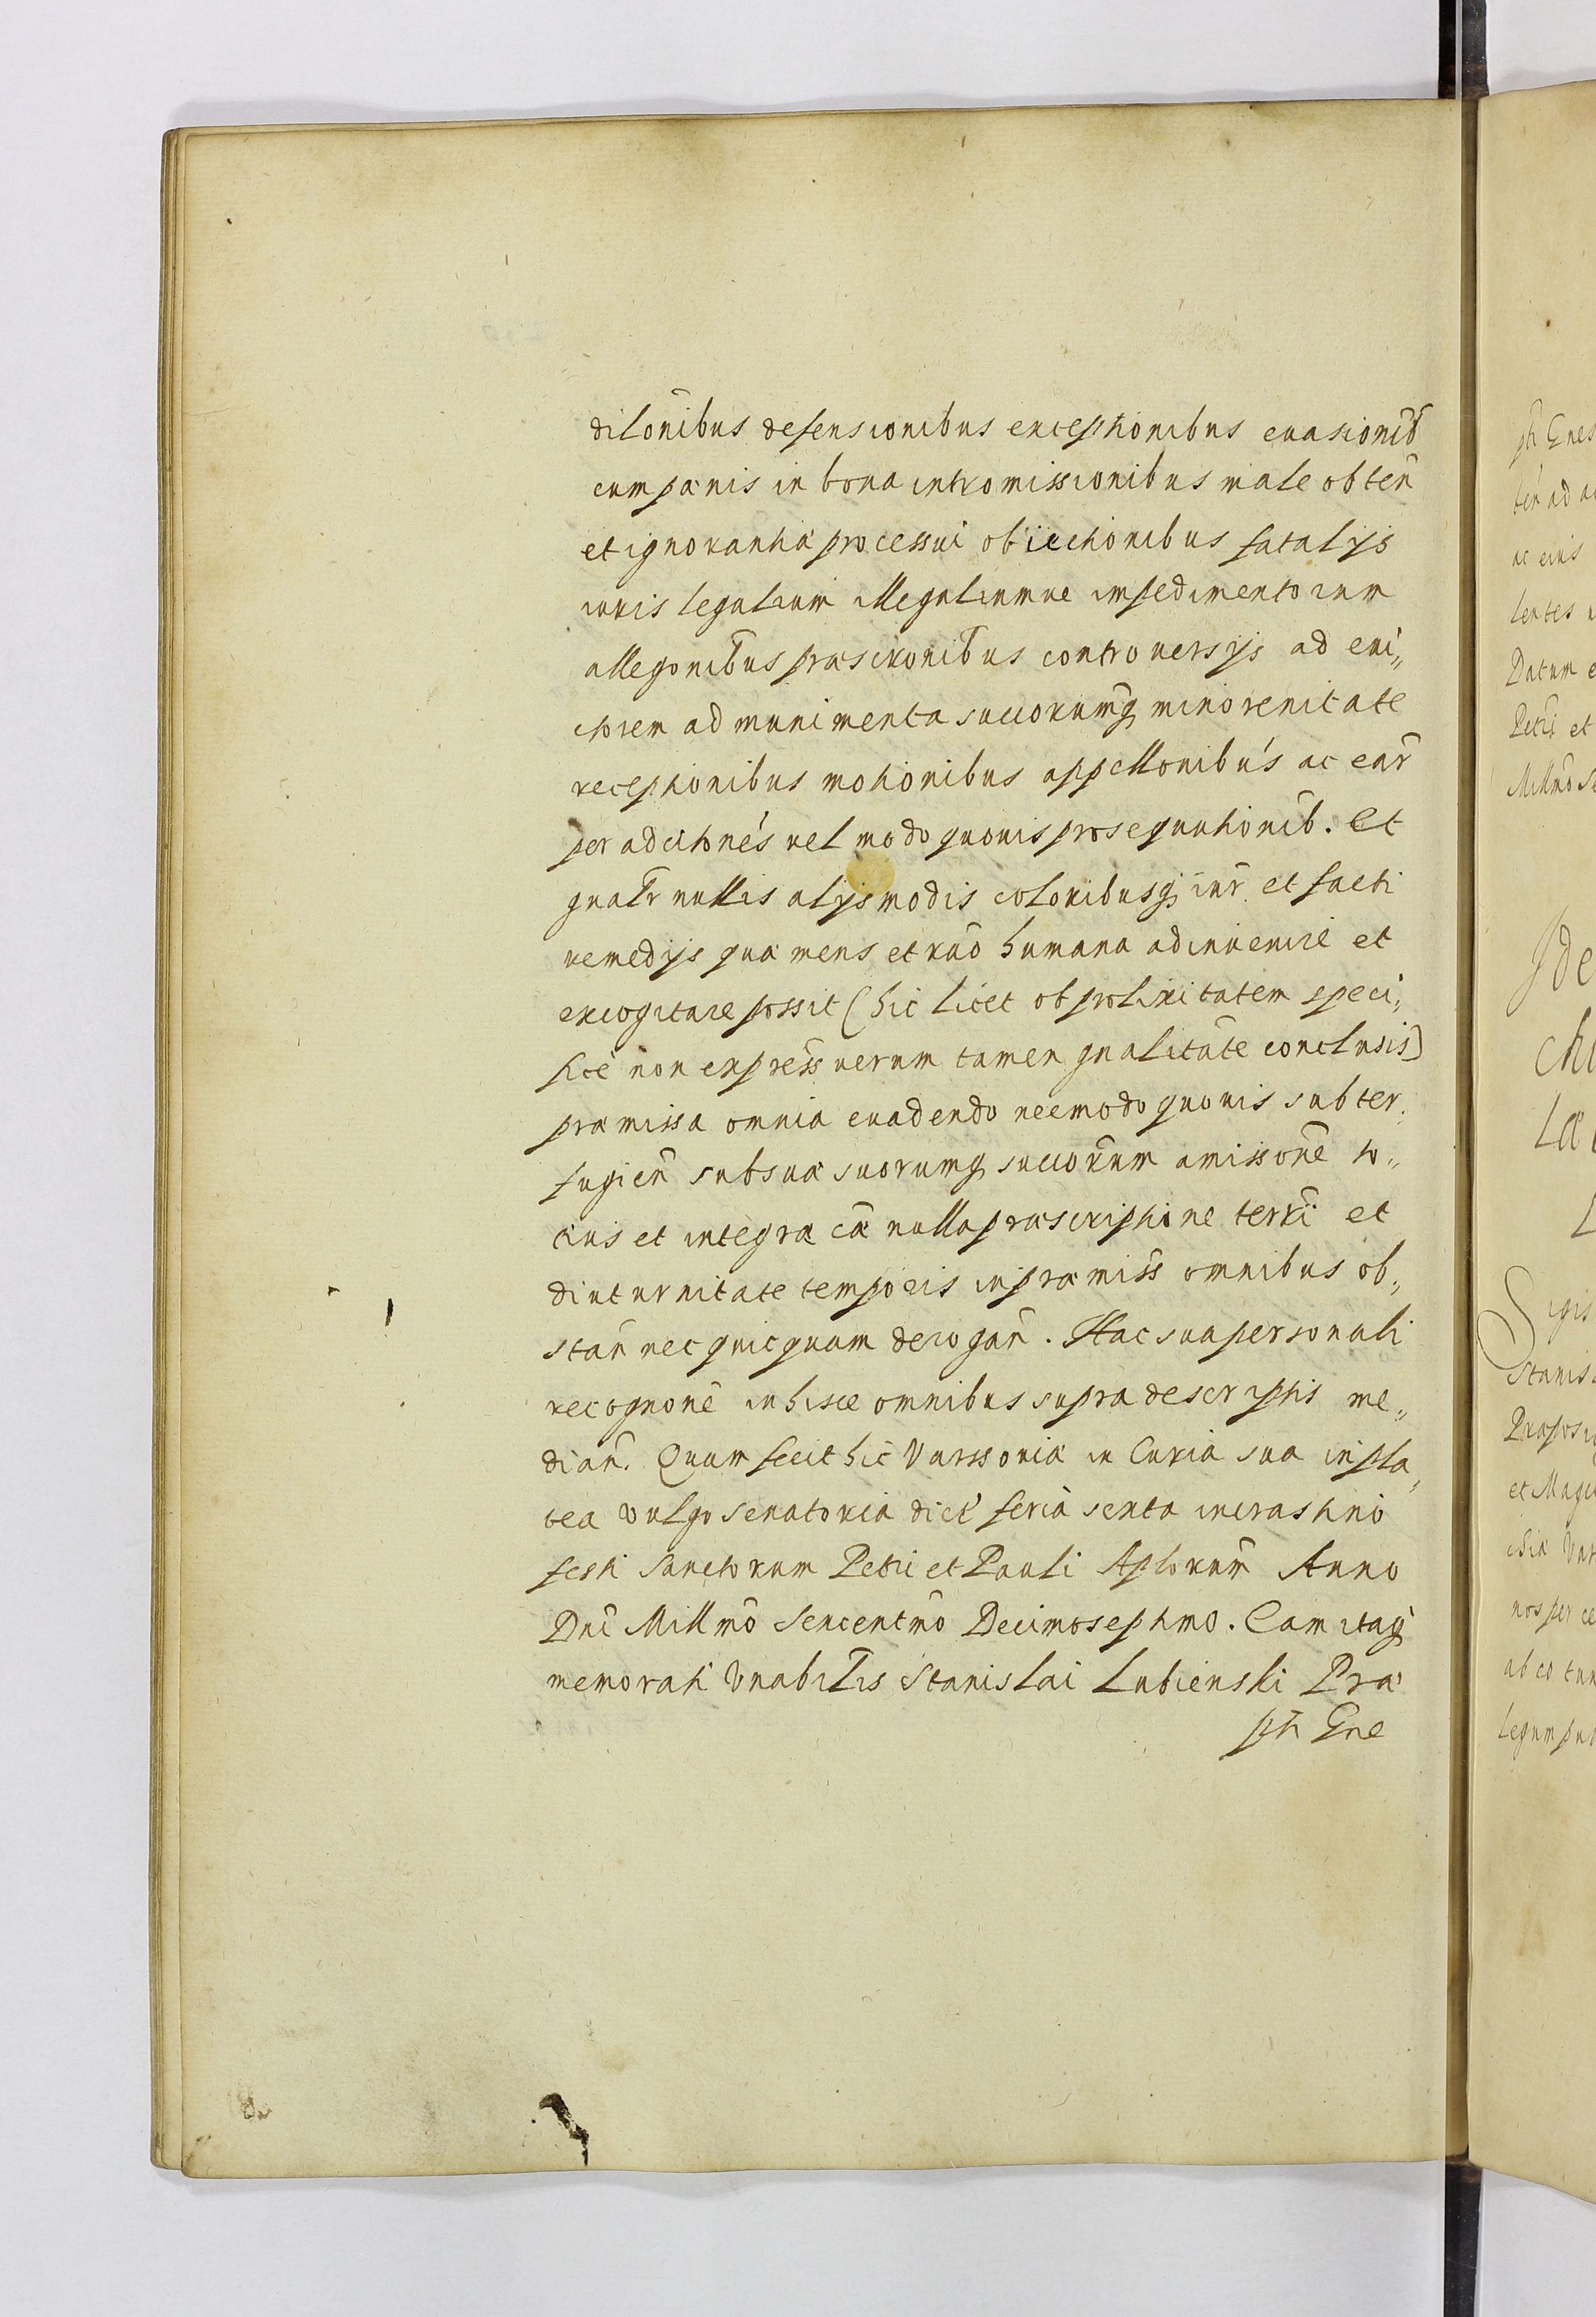 dilōnibus defensionibus exceptionibus euasionib̄
cum pænis in bona intromissionibus male obten̄
et ignorantiâ processui obiectionibus fatalijs
iuris legalium illegaliumue impedimentorum
allegōnibus præscr̄ōnibus controuersijs ad eui„
ctorem ad munimenta succorumq̄ minorenitate
receptionibus motionibus appellōnibus ac ear̄
per adcitōnes uel modo quouis prosequutionib. Et
gnalr̄ nullis alijs modis coloribusq; iur̄ et facti
remedijs quæ mens et rāō humana adinuenire et
excogitare possit (hic licet ob prolixitatem speci„
fice non express̄ uerum tamen qualitāte conclusis)
præmissa omnia euadendo neemodo quouis subter„
fugien̄ sub sua suorumq; succorum amissōne to„
tius et integræ cǣ nulla præscriptione terr̄i et
diuturnitate temporis in præmiss̄ omnibus ob„
stan̄ nec quicquam derogan̄. Hac sua personali
recognōne in hisce omnibus supra descriptis me„
dian̄. Quam fecit hic Varssouiæ in Curia sua in pla„
tea vulgo senatoria dict̄ feria sexta in crastino
festi Sanctorum Petri et Pauli Aplorum̄ Anno
Dn̄i Mill̄mo Sexcentm̄o Decimoseptimo. Cam itaq̄
memorati Vnabilis Stanislai Lubienski Præ
pti Gne
pti Gnes
ten ad
ac eius
lentes
Datum
Petri et
Millmo
Ide
Læ
Sigis
Stanis
Præpos
et Magi
nos per ce
ab eo tun
legum